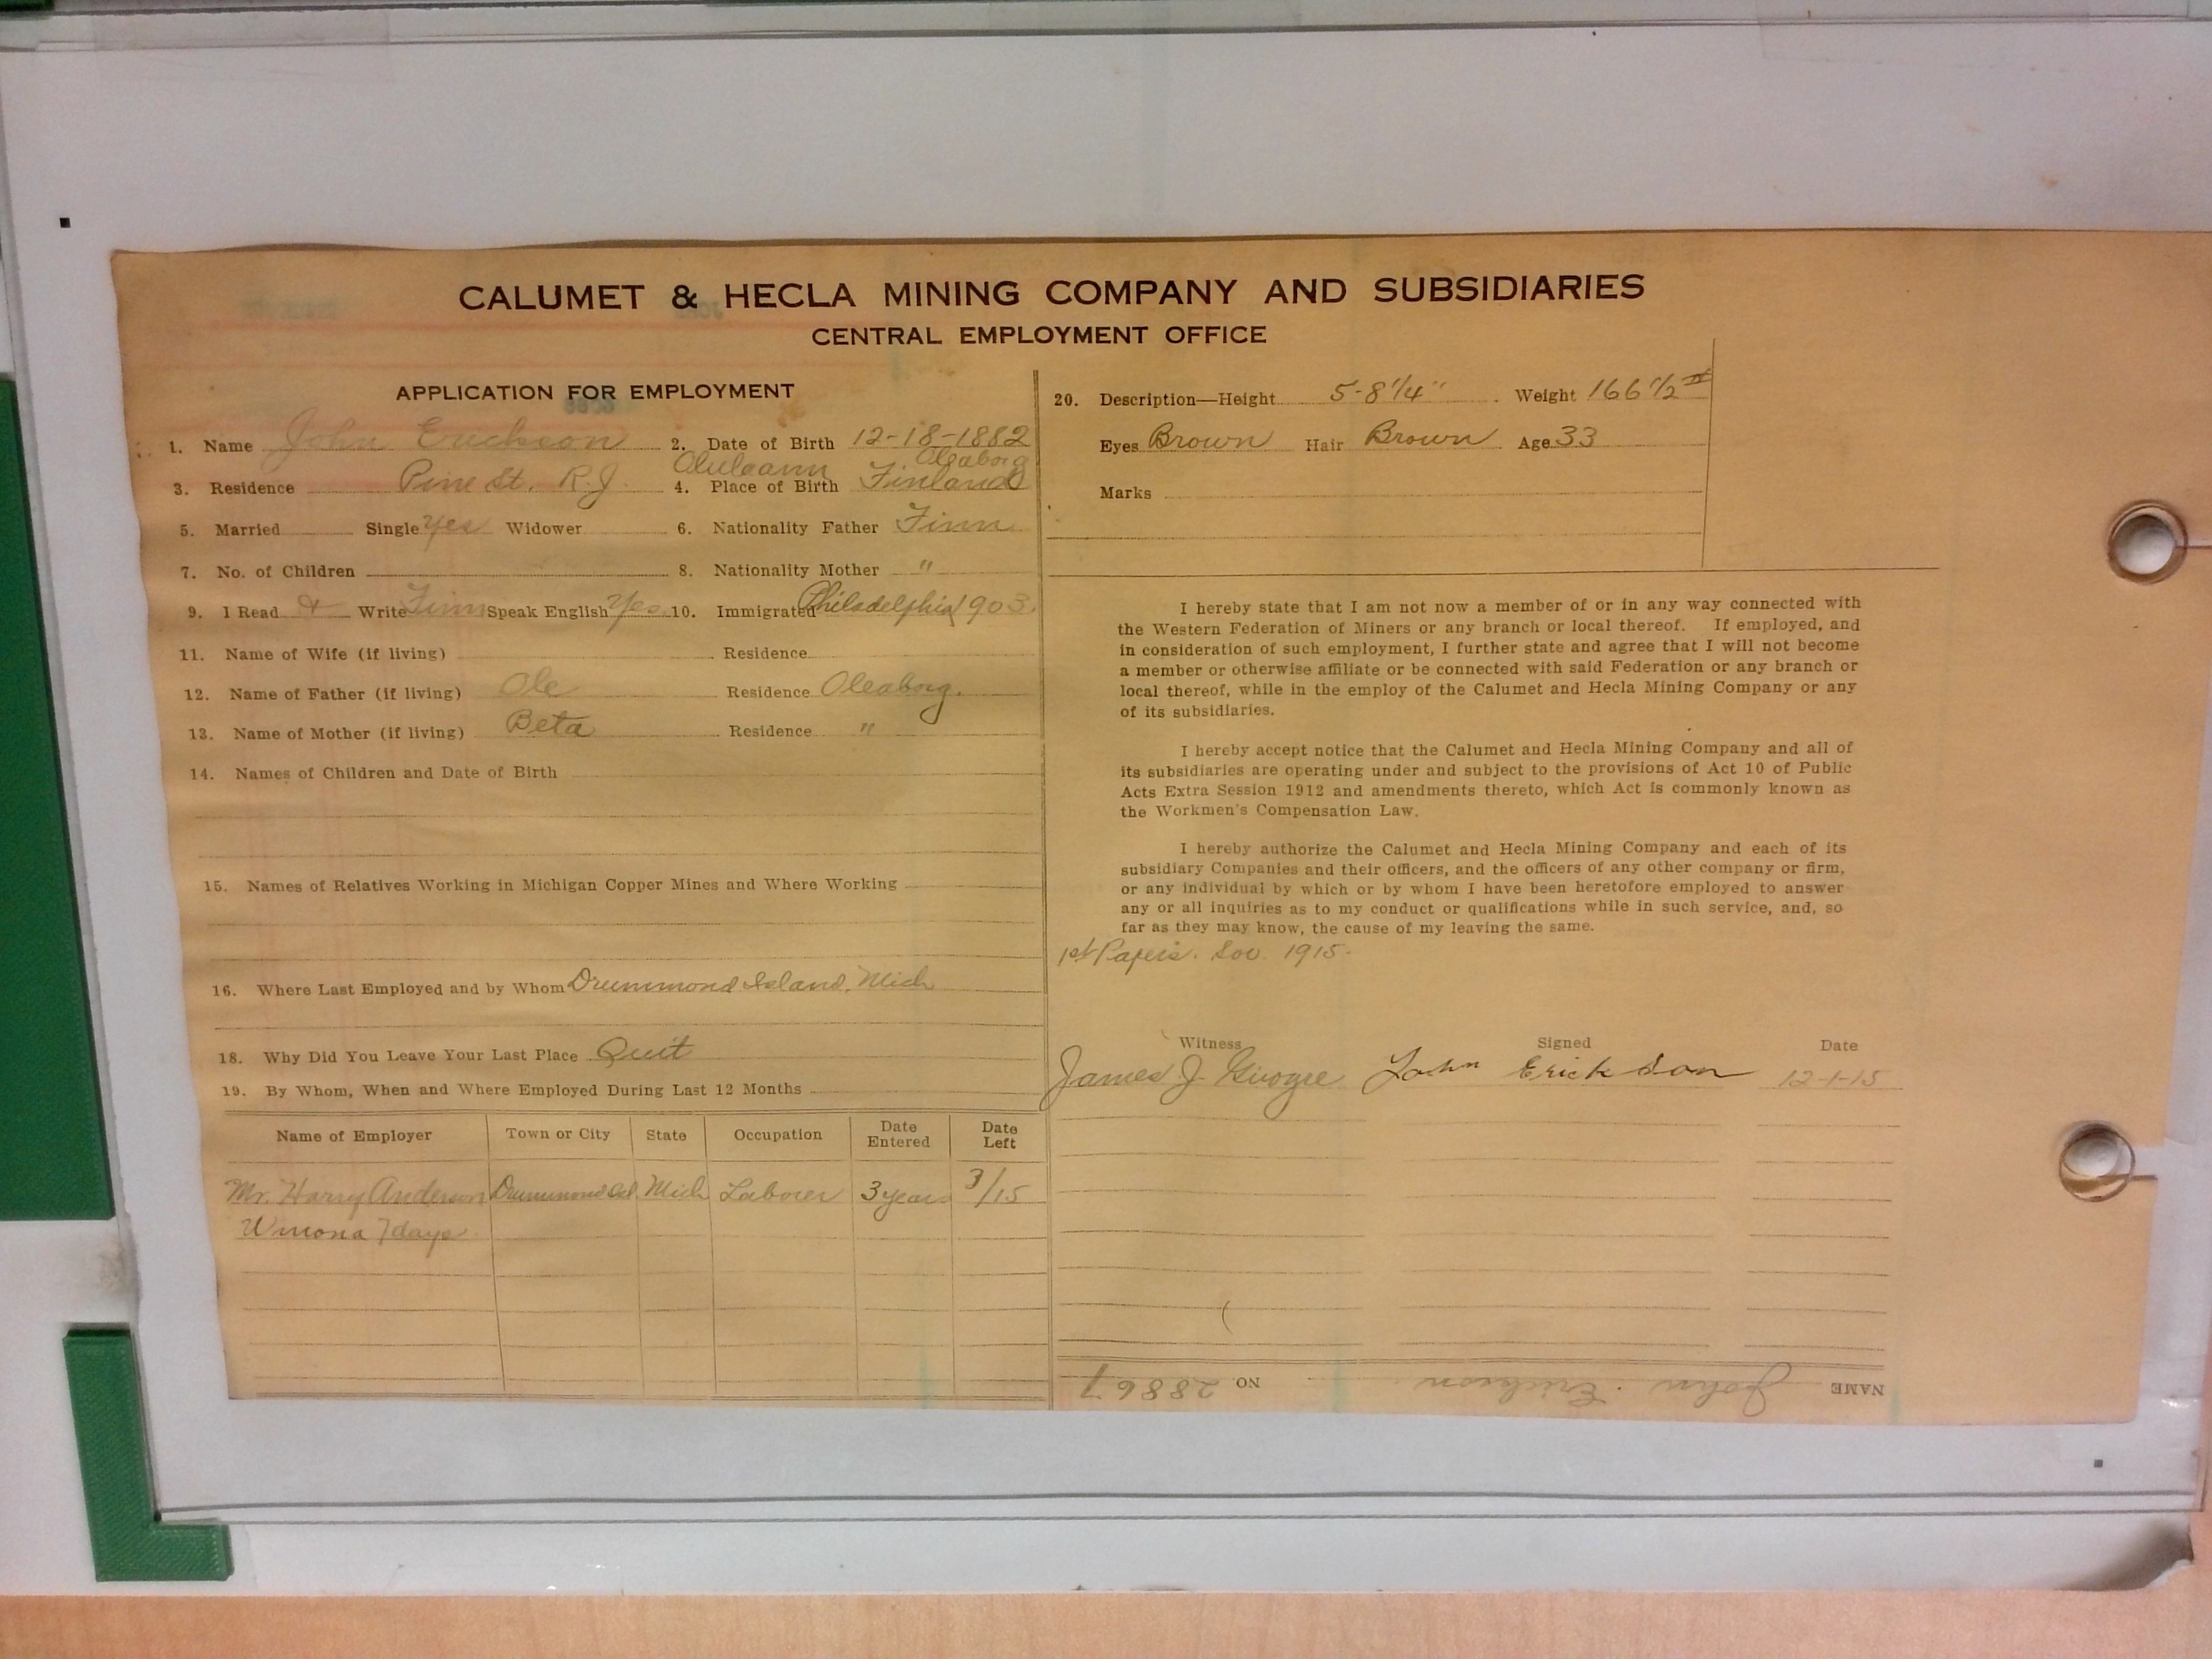 CALUMET & HECLA MINING COMPANY AND SUBSIDIARIES
CENTRAL EMPLOYMENT OFFICE
APPLICATION FOR EMPLOYMENT
1. Name John Erickson 2. Date of Birth 12-18-1882
Oleaborg
3. Residence Pine St. R.J. 4. Place of Birth Finland
5. Married Single Yes Widower 6. Nationality Father Finn
7. No. of Children 8. Nationality Mother "
9. I Read & Write Finn Speak English Yes 10. Immigrated Philadelphia 1903.
11. Name of Wife (if living) Residence
12. Name of Father (if living) Ole Residence Oleaborg.
13. Name of Mother (if living) Beta Residence "
14. Names of Children and Date of Birth
15. Names of Relatives Working in Michigan Copper Mines and Where Working
16. Where Last Employed and by Whom Drummond Island, Mich
18. Why Did You Leave Your Last Place Quit
19. By Whom, When and Where Employed During Last 12 Months
Name of Employer Town or City State Occupation Date Entered Date Left
Mr. Harry Anderson Drummond Isl. Mich Laborer 3 years 3/15
Winona 7 days
20. Description—Height 5-8 1/4" Weight 166 1/2 #
Eyes Brown Hair Brown Age 33
Marks
I hereby state that I am not now a member of or in any way connected with
the Western Federation of Miners or any branch or local thereof. If employed, and
in consideration of such employment, I further state and agree that I will not become
a member or otherwise affiliate or be connected with said Federation or any branch or
local thereof, while in the employ of the Calumet and Hecla Mining Company or any
of its subsidiaries.
I hereby accept notice that the Calumet and Hecla Mining Company and all of
its subsidiaries are operating under and subject to the provisions of Act 10 of Public
Acts Extra Session 1912 and amendments thereto, which Act is commonly known as
the Workmen's Compensation Law.
I hereby authorize the Calumet and Hecla Mining Company and each of its
subsidiary Companies and their officers, and the officers of any other company or firm,
or any individual by which or by whom I have been heretofore employed to answer
any or all inquiries as to my conduct or qualifications while in such service, and, so
far as they may know, the cause of my leaving the same.
1st Papers. 1915-
Witness Signed Date
James J. John Erickson 12-1-15
NAME John Erickson NO 28867